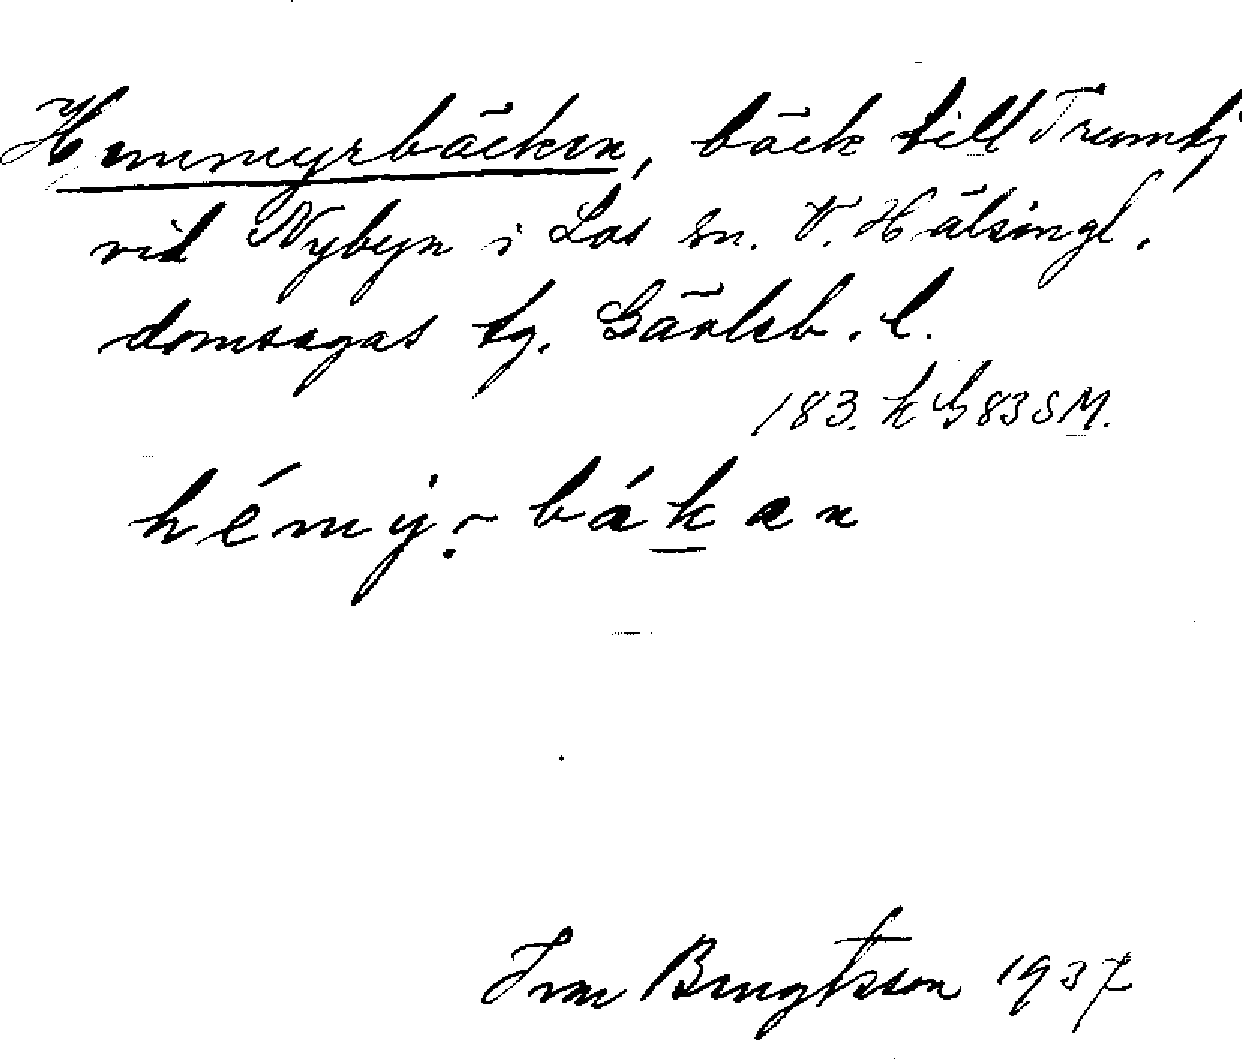 Hemmyrbäcken, bäck till Trumtj
vid Nybyn i Los sn. V. Hälsingl.
domsagas tg. Gävleb. l.
183. h G 83 S M.
hémý.r bákan
Ivar Bengtsson 1937